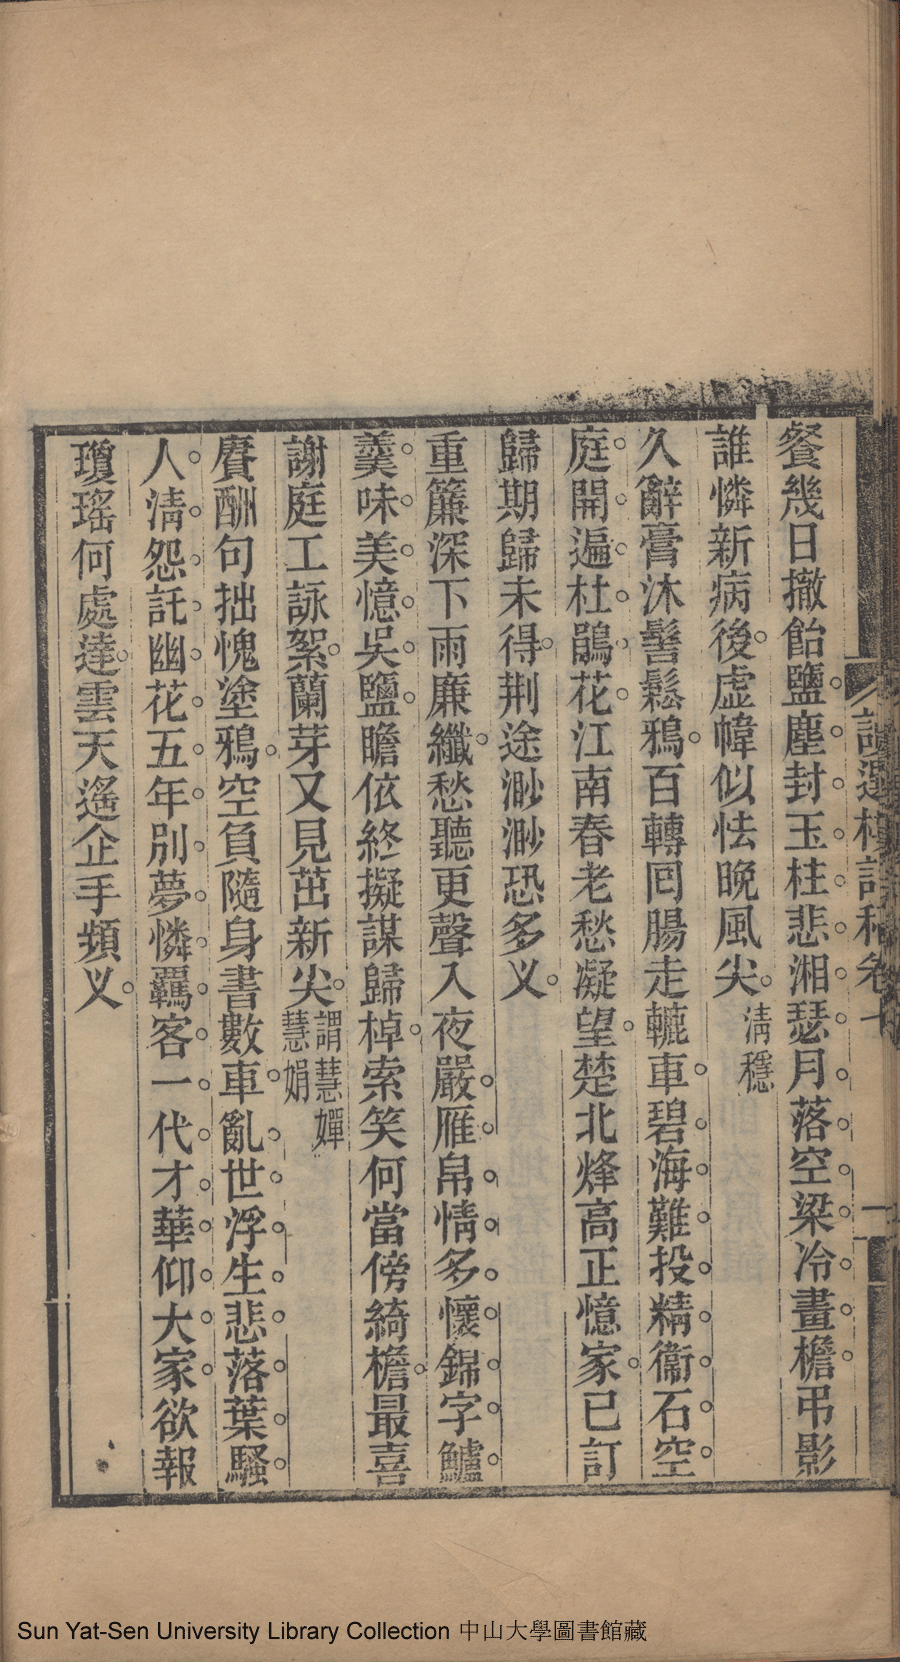 餐幾日撤飴鹽塵封玉柱悲湘瑟月落空梁冷畫檐弔影
誰憐新病後虛幃似怯晚風尖
清穩
久辭膏沐髻鬆鴉百轉回腸走轆車碧海難投精衞石空
庭開遍杜鵑花江南春老愁凝望楚北烽高正憶家已訂
歸期歸未得荆途渺渺恐多义
重簾深下雨廉纖愁聽更聲入夜嚴雁帛情多懷錦字鱸
羹味美憶吳鹽瞻依終擬謀歸棹索笑何當傍綺檐最喜
謝庭工詠絮蘭芽又見茁新尖
謂慧嬋
慧娟
賡酬句拙愧塗鴉空負隨身書數車亂世浮生悲落葉騷
人清怨託幽花五年別夢憐羈客一代才華仰大家欲報
瓊瑤何處達雲天遙企手頻义
Sun Yat-Sen University Library Collection 中山大學圖書館藏